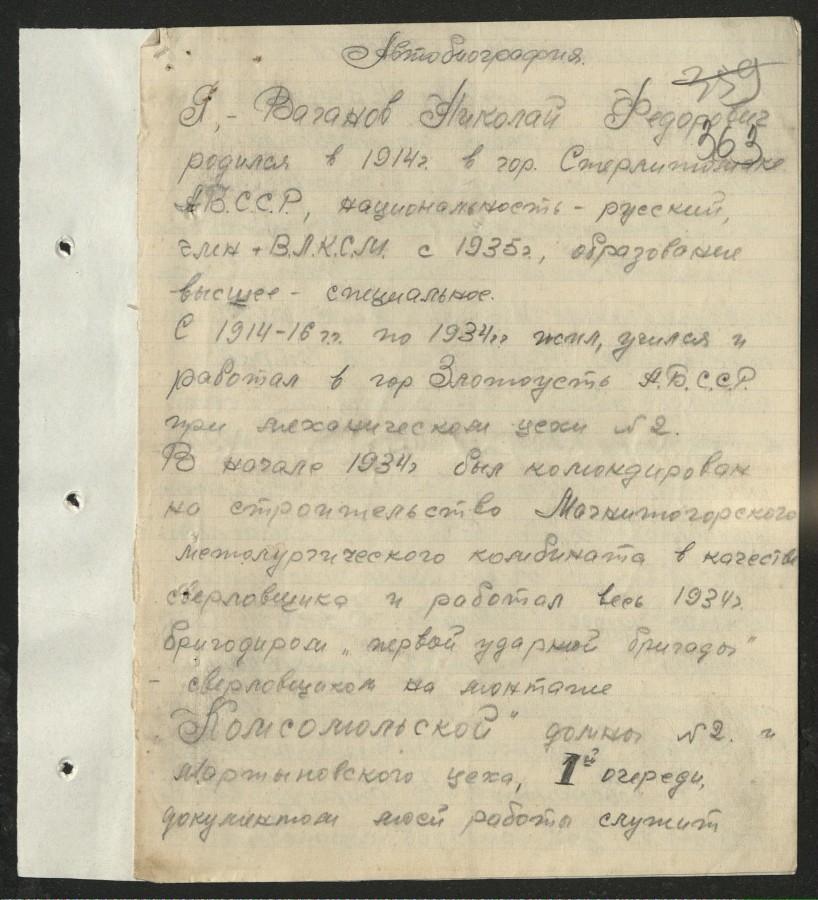 Автобиография.
339
363
Я, - Ваганов Николай Федорович
родился в 1914г. в гор. Стерлитамаке
А.Б.С.С.Р., национальность - русский,
член В.Л.К.С.М. с 1935г., образование
высшее - специальное.
С 1914-16г.г. по 1934г. жил, учился и
работал в гор Златоусть А.Б.С.С.Р.
при механическом цехи №2.
В начале 1934г был командирован
на строительство Магнитогорского
металургического комбината в качестве
сверловщика и работал весь 1934г.
бригадиром „первой ударной бригады"
- сверловщиком на монтаже
„Комсомольской" домны №2. и
Мартыновского цеха, 1й очереди,
документом моей работы служит